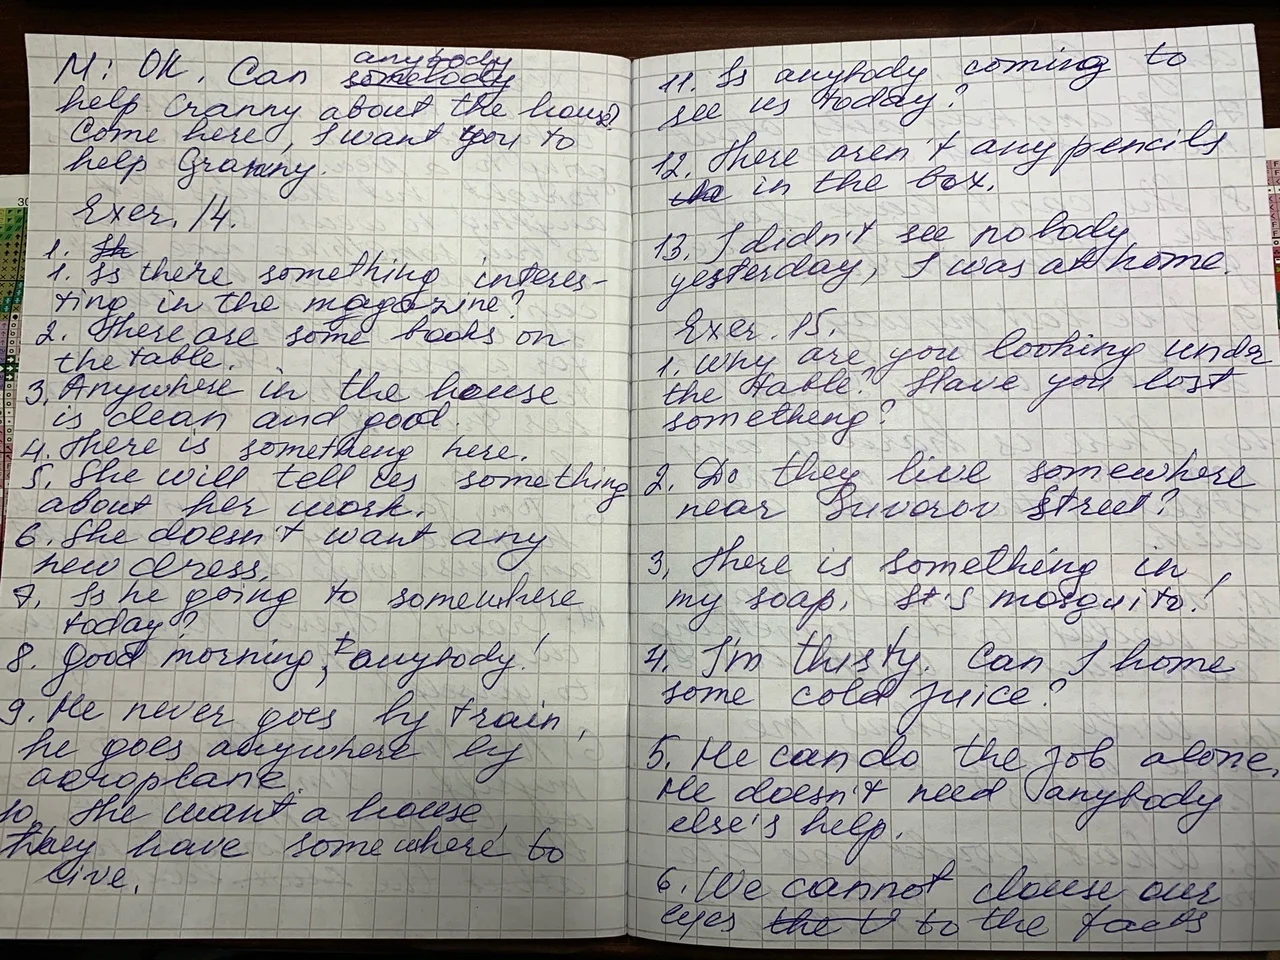 M: OK. Can anybody
somebody
help Granny about the house?
Come here, I want you to
help Granny.
Exer. 14.
1.
1. Is there something interes-
ting in the magazine?
2. There are some books on
the table.
3. Anywhere in the house
is clean and good.
4. There is something here.
5. She will tell us something
about her work.
6. She doesn't want any
new dress.
7. Is he going to somewhere
today?
8. Good morning, anybody!
9. He never goes by train,
he goes anywhere by
aeroplane.
10. She want a house,
They have somewhere to
live.
11. Is anybody coming to
see us today?
12. There aren't any pencils
in the box.
13. I didn't see nobody
yesterday, I was at home.
Exer. 15.
1. Why are you looking under
the table? Have you lost
something?
2. Do they live somewhere
near Suvorov Street?
3. There is something in
my soap. It's mosquito!
4. I'm thisty. Can I home
some cold juice?
5. He can do the job alone.
He doesn't need anybody
else's help.
6. We cannot clouse our
eyes the to the facts